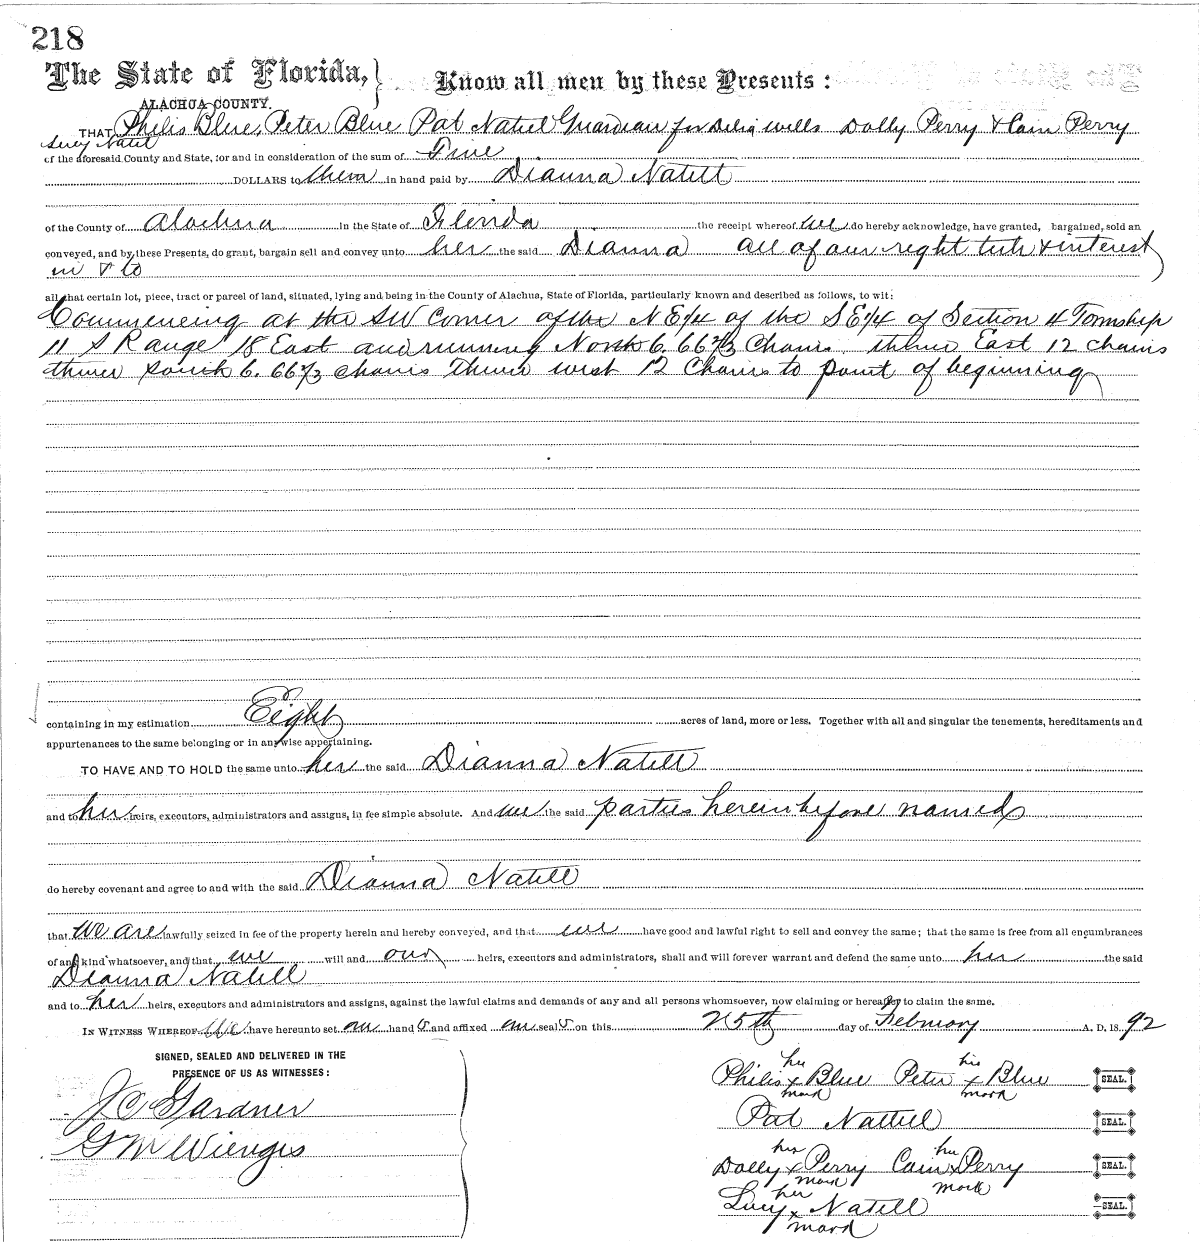 218
The State of Florida, Know all men by these Presents :
ALACHUA COUNTY.
THAT Philis Blue, Peter Blue Pat Natiel Guardian for Delia wells Dolly Perry & Cain Perry
Lucy Natiel
of the aforesaid County and State, for and in consideration of the sum of Five
DOLLARS to them in hand paid by Dianna Natell
of the County of Alachua in the State of Florida the receipt whereof we do hereby acknowledge, have granted, bargained, sold an
conveyed, and by these Presents, do grant, bargain sell and convey unto her the said Dianna all of our right title & interest
in & to
all that certain lot, piece, tract or parcel of land, situated, lying and being in the County of Alachua, State of Florida, particularly known and described as follows, to wit:
Commencing at the SW Corner of the N E/4 of the S E/4 of Section 4 Township
11 S Range 18 East and running North 6.66 2/3 Chains thence East 12 chains
thence South 6.66 2/3 chains thence west 12 Chains to point of beginning
containing in my estimation Eight acres of land, more or less. Together with all and singular the tenements, hereditaments and
appurtenances to the same belonging or in anywise appertaining.
TO HAVE AND TO HOLD the same unto her the said Dianna Natell
and to her heirs, executors, administrators and assigns, in fee simple absolute. And we the said parties hereinbefore named
do hereby covenant and agree to and with the said Dianna Natell
that We are lawfully seized in fee of the property herein and hereby conveyed, and that we have good and lawful right to sell and convey the same; that the same is free from all encumbrances
of any kind whatsoever, and that we will and our heirs, executors and administrators, shall and will forever warrant and defend the same unto her the said
Dianna Natell
and to her heirs, executors and administrators and assigns, against the lawful claims and demands of any and all persons whomsoever, now claiming or hereafter to claim the same.
IN WITNESS WHEREOF We have hereunto set our hand s and affixed our seal s on this 25th day of February A. D. 18 92
SIGNED, SEALED AND DELIVERED IN THE
PRESENCE OF US AS WITNESSES :
her his
Philis x Blue Peter x Blue SEAL.
mark mark
J C Gardner
Pat Nattiel SEAL.
G M Wienges
her his
Dolly x Perry Cain x Perry SEAL.
mark mark
her
Lucy x Natell SEAL.
mark